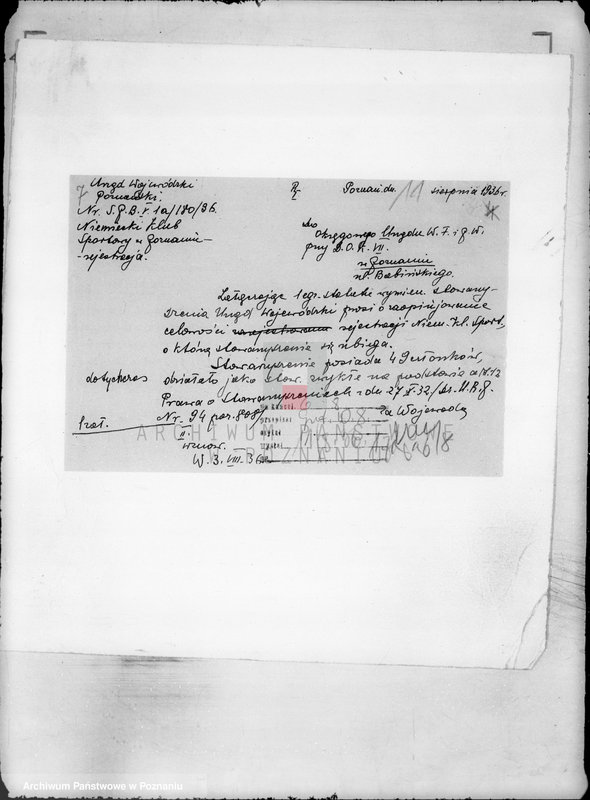 Urząd Wojewódzki
Poznański.
Nr. S.P.B. V. 1a/180/36.
Niemiecki Klub
Sportowy w Poznaniu -
- rejestracja.
Poznań dn. 11 sierpnia 1936 r.
Do
Okręgowego Urzędu W.F. i P.W.
przy D.O.K. VII.
w Poznaniu
ul. Babińskiego.
Załączając 1 egz. statutu wymien. stowarzy-
szenia Urząd Wojewódzki prosi o zaopinjowanie
celowości rejestracji Niem. Kl. Sport.,
o którą stowarzyszenie się ubiega.
Stowarzyszenie posiada 49 członków,
dotychczas działało jako stow. zwykłe na podstawie
Prawa o Stowarzyszeniach z dn. 27 X. 32 /Dz. U.R.P.
Nr. 94 poz. 808/
Za Wojewodę
1 zał.
wznow.
W. 3. VIII. 36
ARCHIWUM PAŃSTWOWE
W POZNANIU
Archiwum Państwowe w Poznaniu